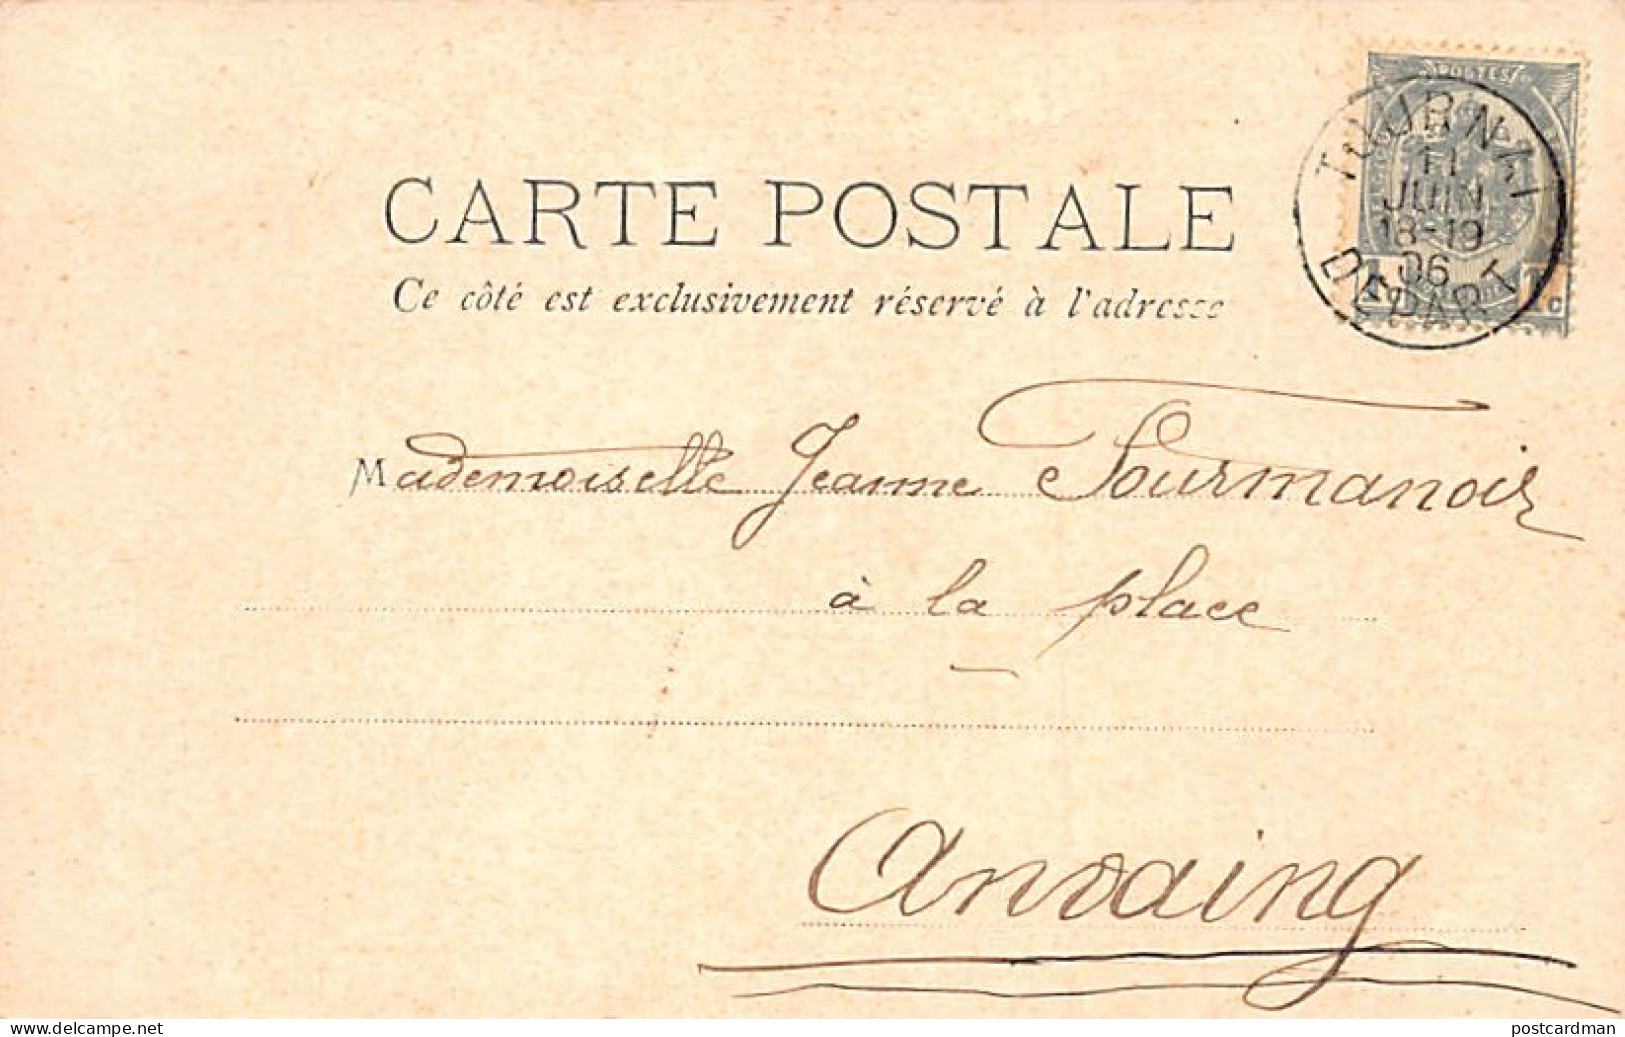 POSTES
TOURNAI
11
JUIN
18-19
06
DEPART
1c
CARTE POSTALE
Ce côté est exclusivement réservé à l'adresse
Mademoiselle Jeanne Fourmanoir
à la place
Anvaing
www.delcampe.net
postcardman